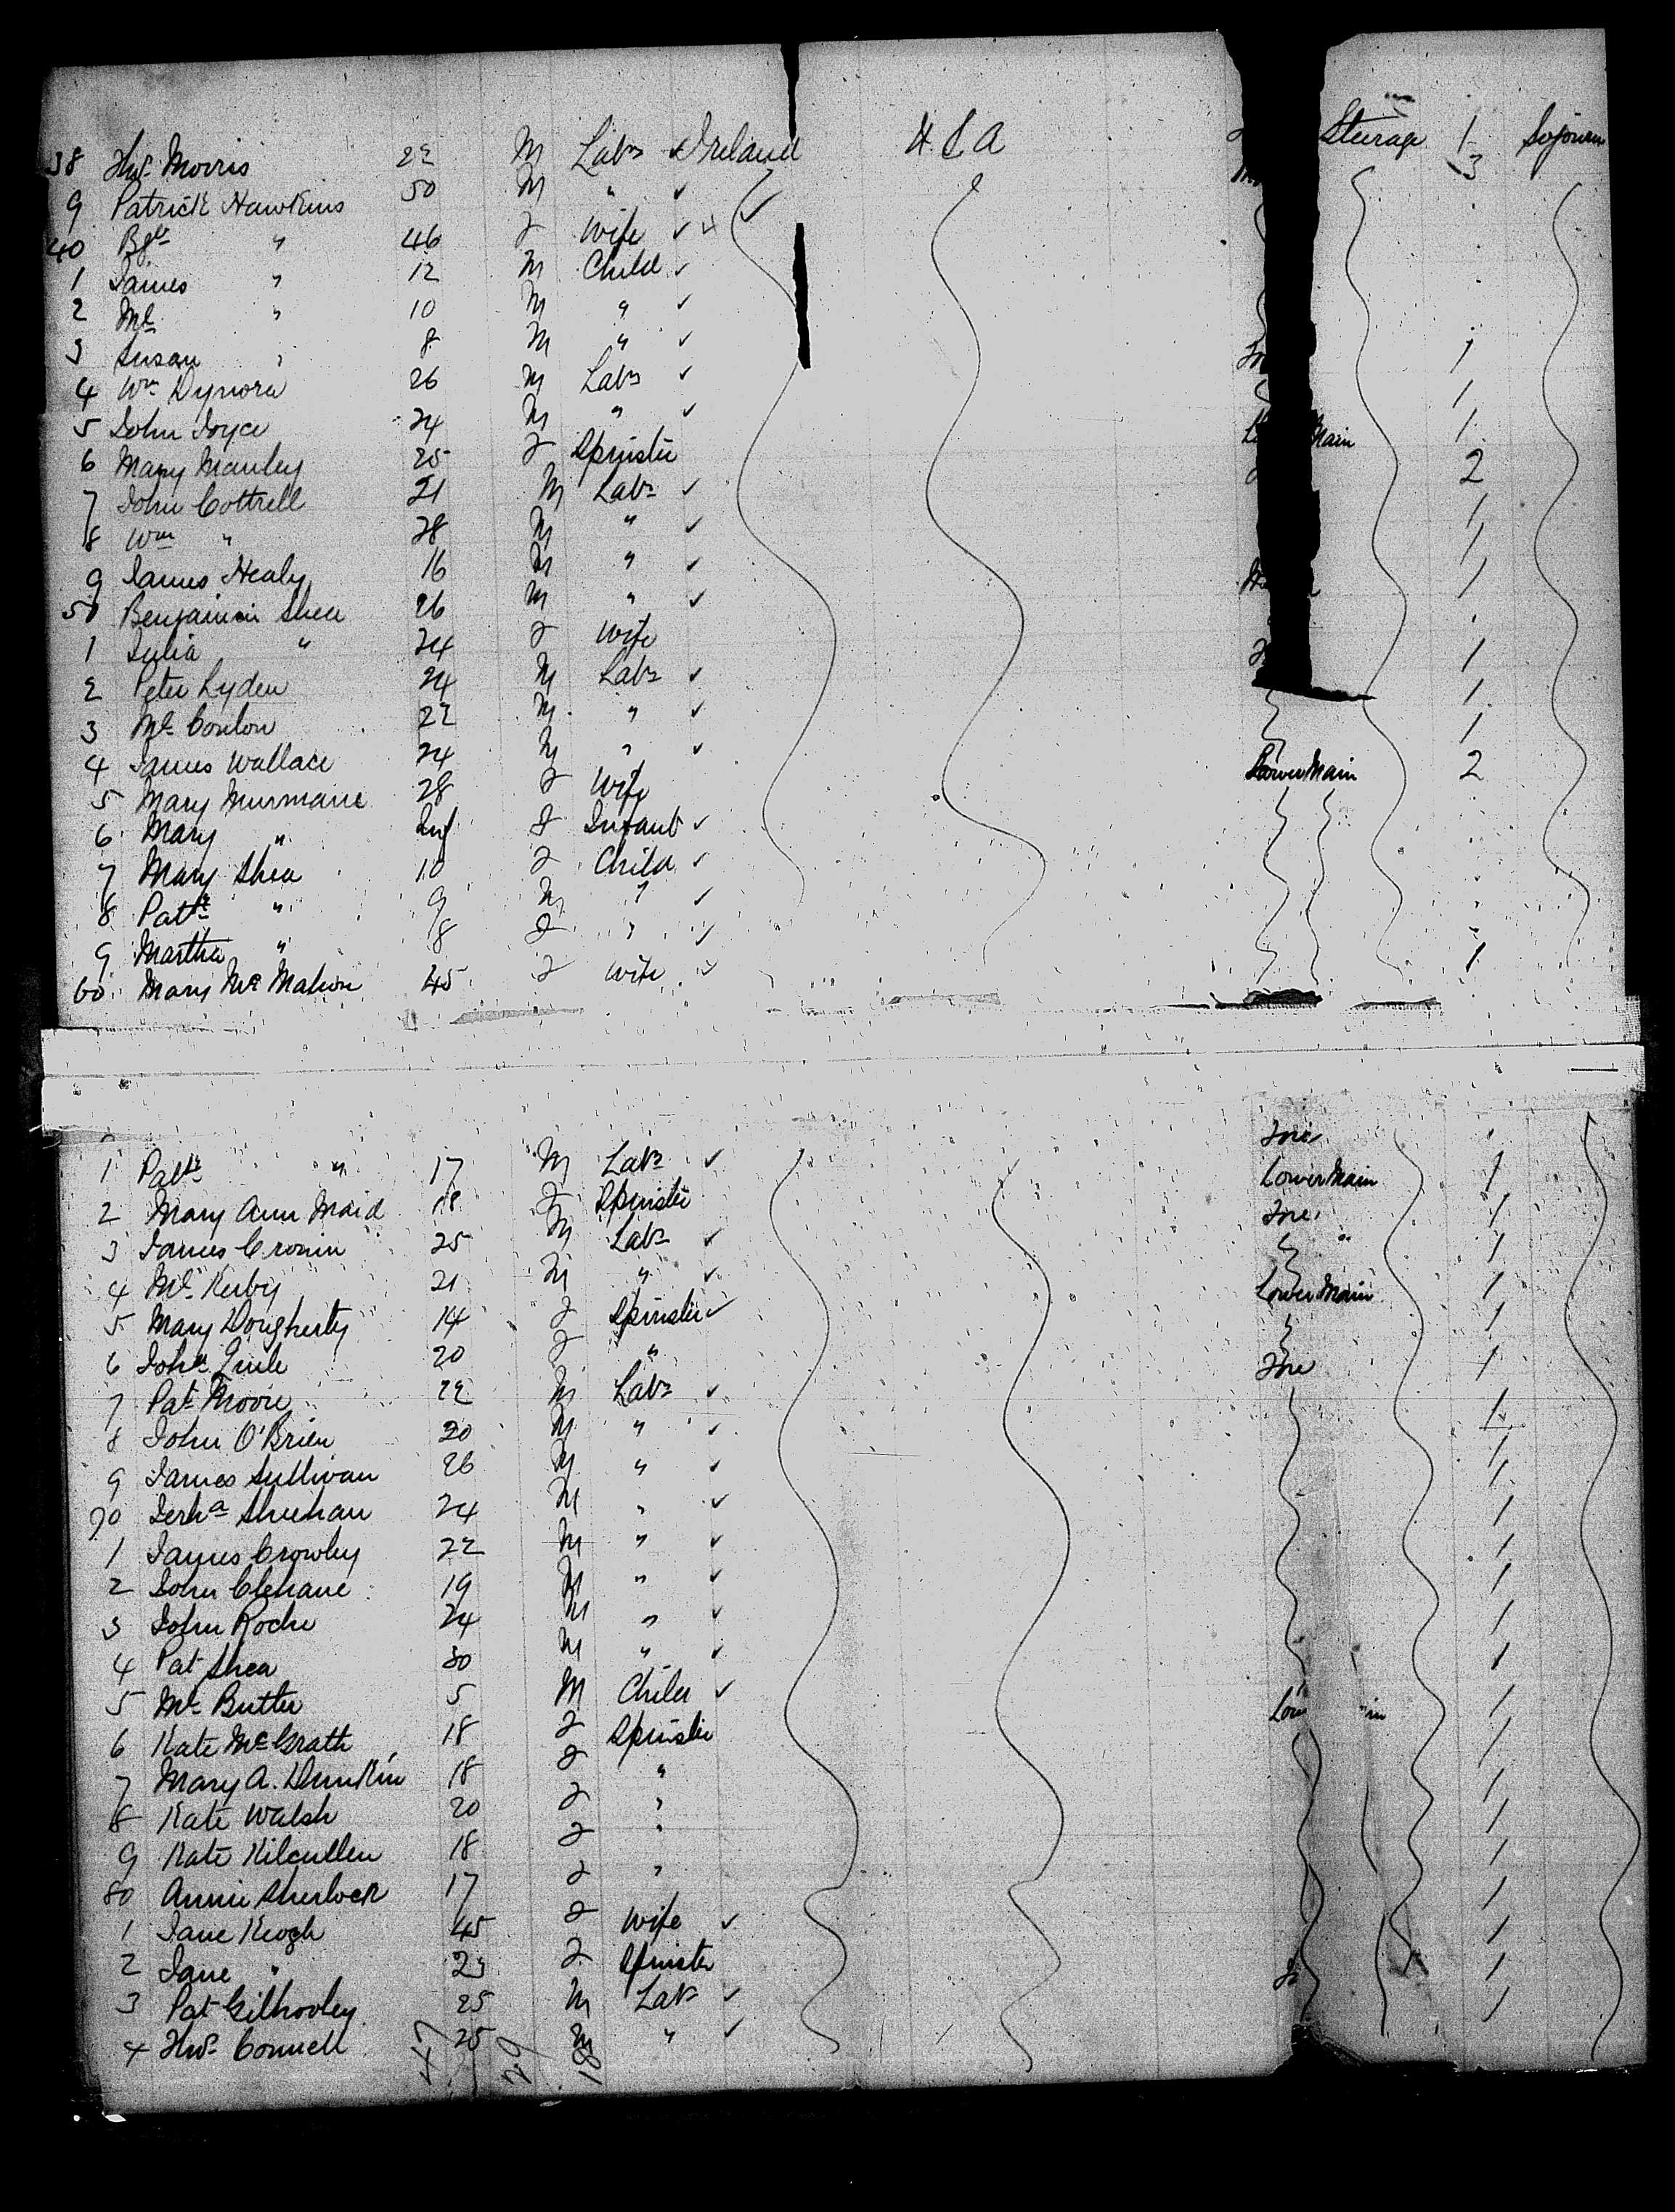 38 Thos Morris 22 M Labr Ireland U.S.A Steerage 1 Sojourn
9 Patrick Hawkins 50 M " 3
40 " 46 F Wife
1 James " 12 M Child
2 Ml " 10 M "
3 Susan " 8 M "
4 Wm 26 M Labr 1
5 John Joyce 24 M " 1
6 Mary Manley 25 F Spinster Main 1
7 John Cottrell 21 M Labr 2
8 Wm " 28 M " 1
9 James Healy 16 M " 1
50 Benjamin Shea 26 M " 1
1 Julia " 24 F Wife
2 Peter Lyden 24 M Labr 1
3 Ml Conlon 22 M " 1
4 James Wallace 24 M " 1
5 Mary Murmane 28 F Wife Lower Main 2
6 Mary " Inf F Infant
7 Mary Shea 10 F Child
8 Patk " 9 M "
9 Martha " 8 F "
60 Mary McMahon 45 F Wife 1
1 Patk " 17 M Labr Fore
2 Mary Ann Maid 18 F Spinster Lower Main 1
3 James Cronin 25 M Labr Fore 1
4 Ml Kerby 21 M " " 1
5 Mary Dougherty 14 F Spinster Lower Main 1
6 Joha 20 F " 1
7 Pat Moore 22 M Labr Fore 1
8 John O'Brien 20 M " 1
9 James Sullivan 26 M " 1
70 Sheehan 24 M " 1
1 James Crowley 22 M " 1
2 John Clehane 19 M " 1
3 John Roche 24 M " 1
4 Pat Shea 30 M " 1
5 Ml Butler 5 M Child 1
6 Kate McGrath 18 F Spinster 1
7 Mary A. Dunkin 18 F " 1
8 Kate Walsh 20 F " 1
9 Kate Kilcullen 18 F " 1
80 Annie Sherlock 17 F " 1
1 Jane Keogh 45 F Wife 1
2 Jane " 23 F Spinster 1
3 Pat Gilhooley 25 M Labr 1
4 Thos Connell 25 M " 1
47 29 18